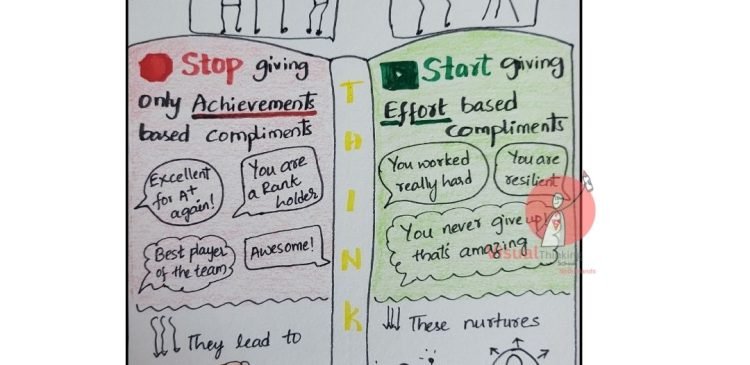 Stop giving
only Achievements
based compliments
Excellent
for A+
again!
You are
a Rank
holder
Best player
of the team
Awesome!
They lead to
T
H
I
N
K
Start giving
Effort based
compliments
You worked
really hard
You are
resilient
You never give up!
that's amazing
These nurtures
Visual Thinking
School
Netherlands